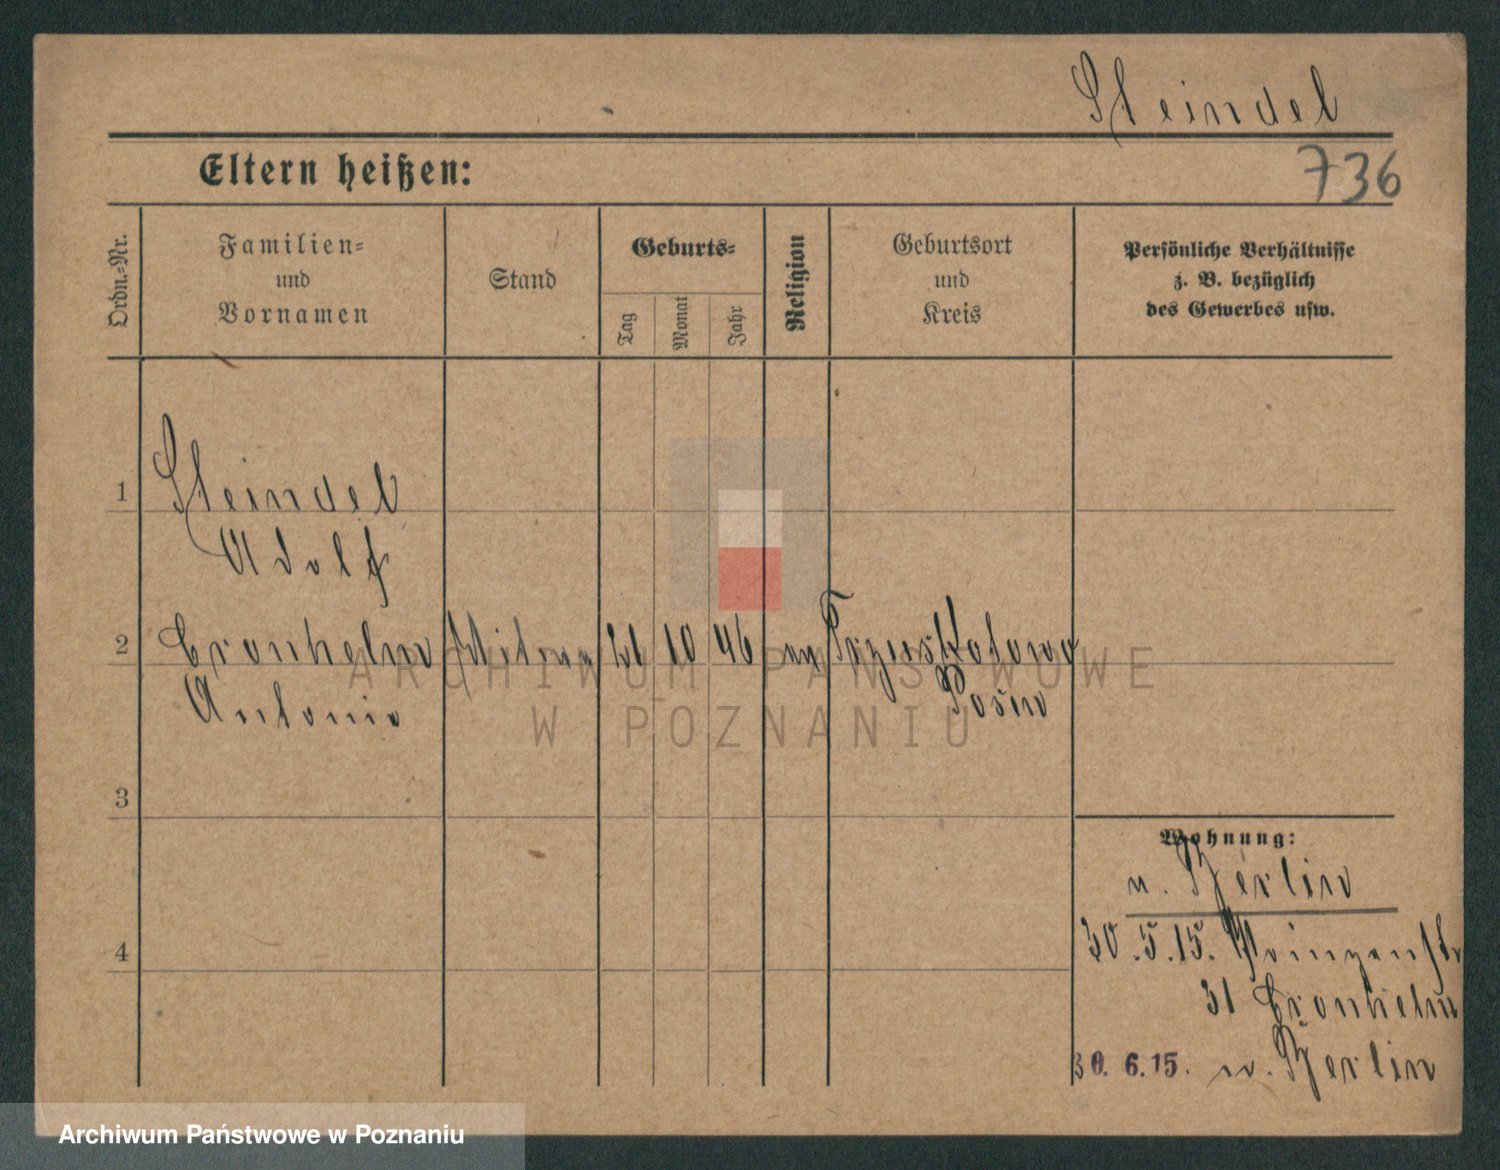 Steindel
Eltern heißen:
736
Ordn.-Nr.
Familien-
und
Vornamen
Stand
Geburts-
Tag
Monat
Jahr
Religion
Geburtsort
und
Kreis
Persönliche Verhältnisse
z. B. bezüglich
des Gewerbes usw.
1
Steindel
Adolf
2
Cronhelm
10 46
Antonie
Posen
ARCHIWUM PAŃSTWOWE
W POZNANIU
3
4
Wohnung:
n. Berlin
30.5.15. Prinzenstr
31 Cronhelm
30. 6.15. n. Berlin
Archiwum Państwowe w Poznaniu